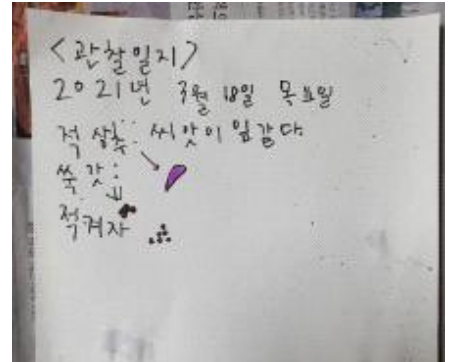 <관찰일지>
2021년 3월 18일 목요일
적상추: 씨앗이 잎같다
쑥갓:
적겨자